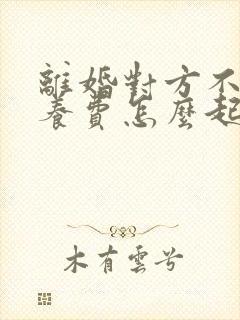 離婚對方不
養費怎麼起
木有雲兮